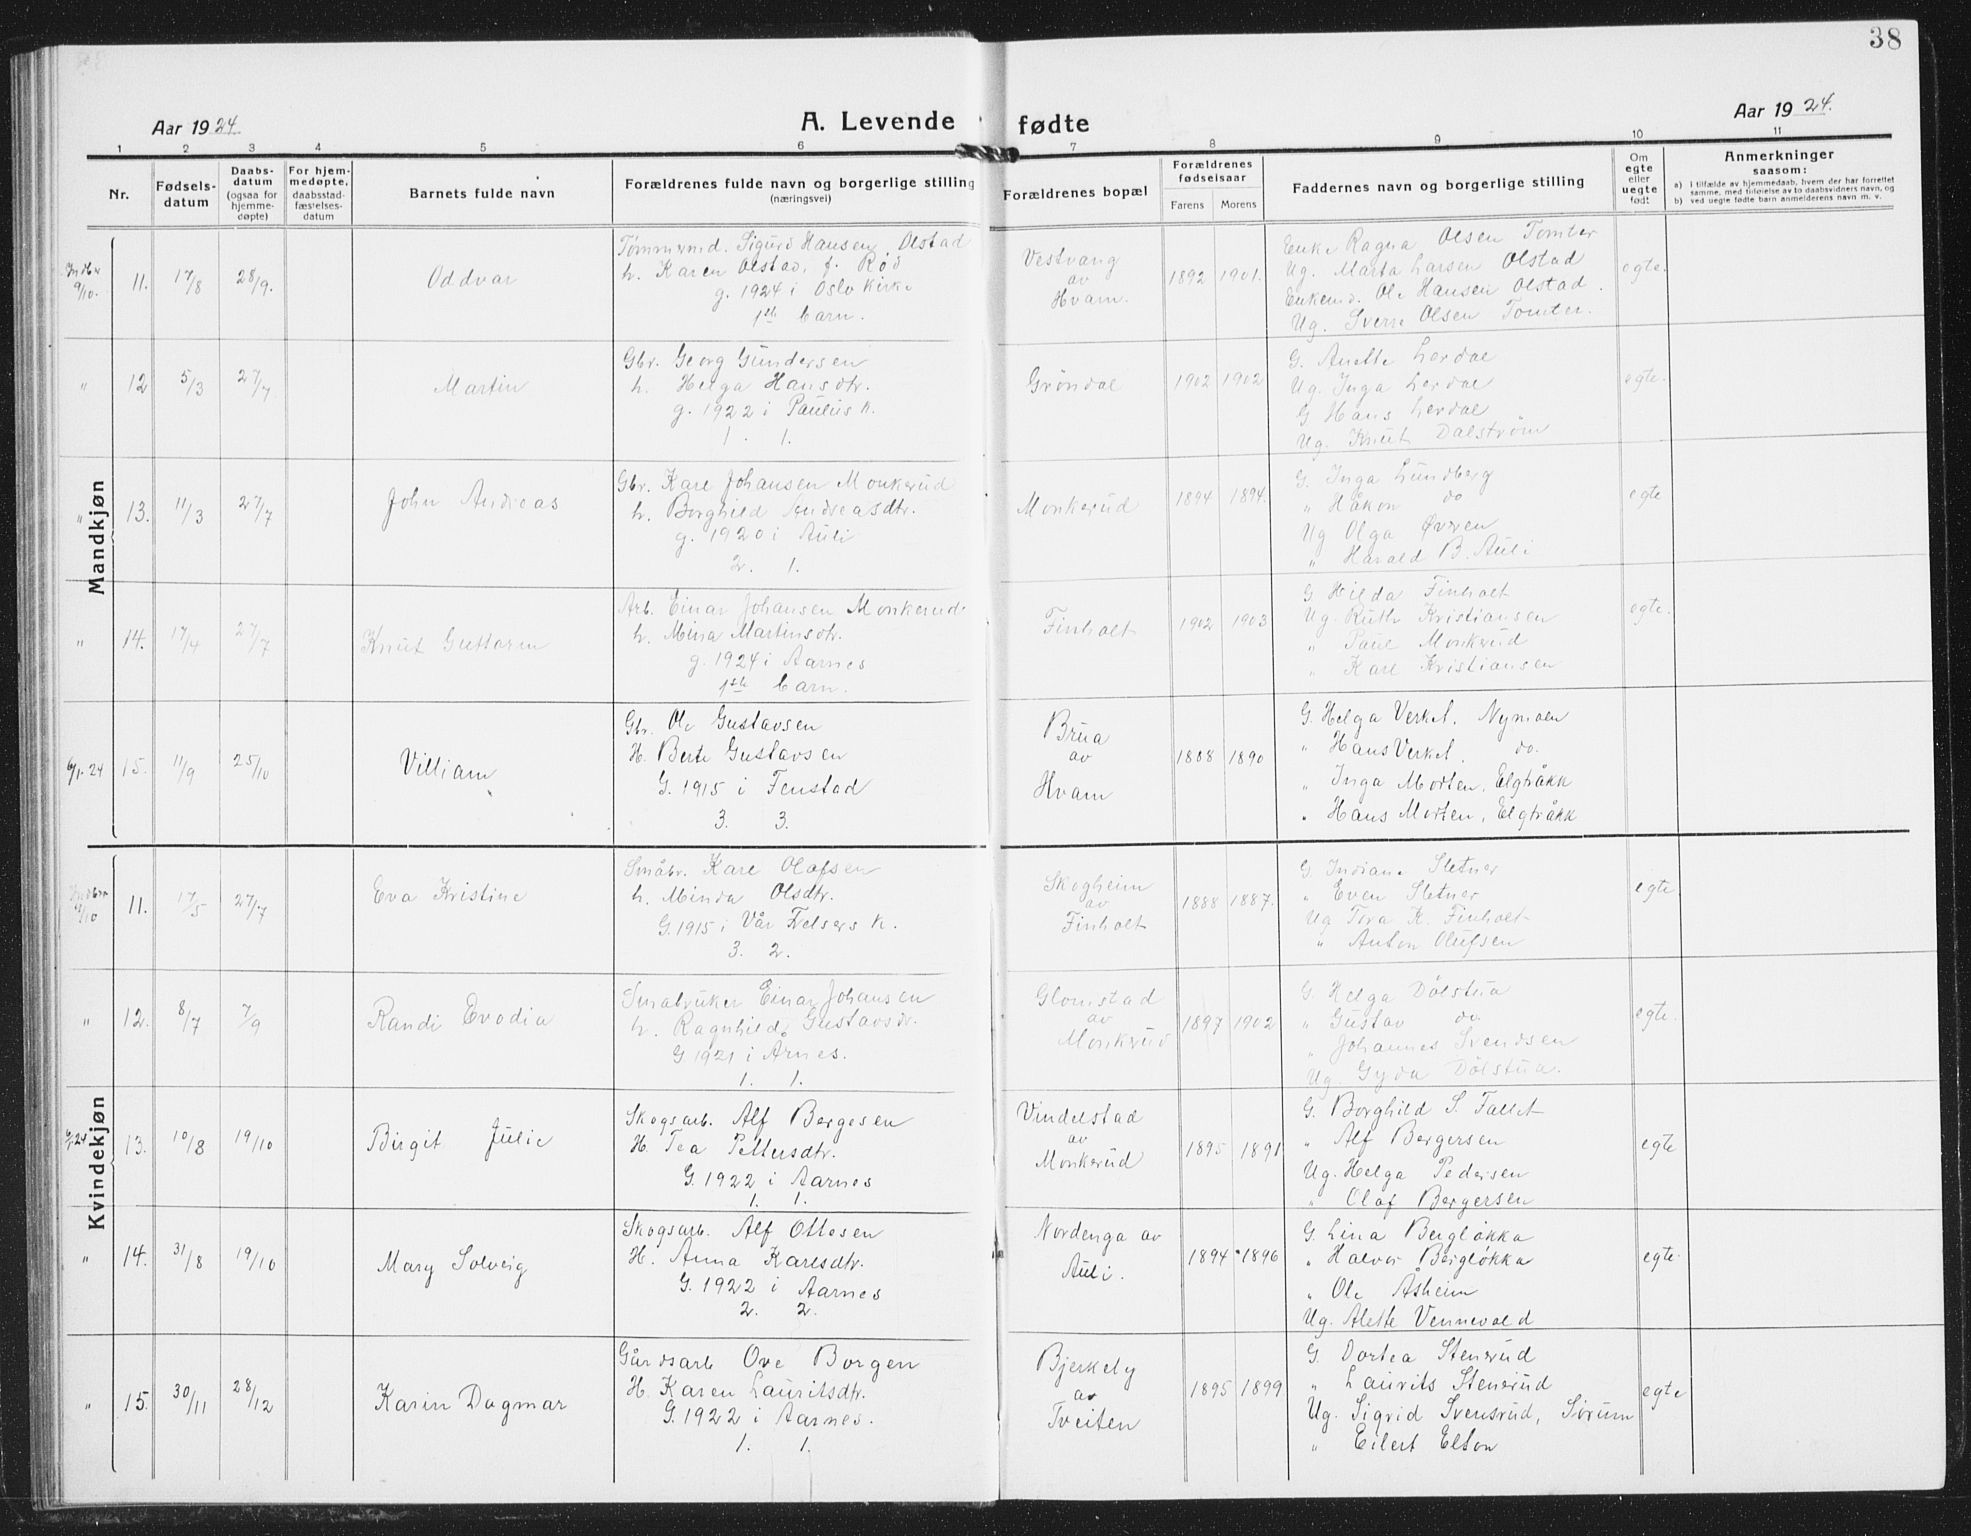 38
Aar 1924
A. Levende fødte
Aar 1924.
1 2 3 4 5 6 7 8 9 10 11
Nr.
Fødsels-
datum
Daabs-
datum
(ogsaa for
hjemme-
døpte)
For hjem-
medøpte,
daabsstad-
fæstelses-
datum
Barnets fulde navn
Forældrenes fulde navn og borgerlige stilling
(næringsvei)
Forældrenes bopæl
Forældrenes
fødselsaar
Farens Morens
Faddernes navn og borgerlige stilling
Om
egte
eller
uegte
født
Anmerkninger
saasom:
a) I tilfælde av hjemmedaab, hvem der har forrettet
samme, med tilføielse av to daabsvidners navn, og
b) ved uegte fødte barn anmelderens navn m. v.
Mandkjøn
Indber 9/10. 11. 17/8 28/9. Oddvar
Tømmermd. Sigurd Hansen Olstad
h. Karen Olstad, f. Rød
g. 1924 i Oslo kirke
1ste barn.
Vestvang
av
Hvam.
1892 1901.
Enke Ragna Olsen Tomter
Ug. Marta Larsen Olstad
Enkemd. Ole Hansen Olstad.
Ug. Sverre Olsen Tomter.
egte.
" 12 5/3 27/7 Martin
Gbr. Georg Gundersen
h. Helga Hansdtr.
g. 1922 i Paulus k.
1. 1.
Grøndal
1902 1902
G. Anette Lerdal
Ug. Inga Lerdal
G Hans Lerdal
Ug. Knut Dalstrøm
egte.
" 13. 11/3 27/7 John Andreas
Gbr. Karl Johansen Monkerud
h. Borghild Andreasdtr.
g. 1920 i Auli
2. 1.
Monkerud
1894 1894.
G. Inga Lundberg
" Håkon do
Ug Olga Øvren
" Harald B. Auli
egte
" 14. 17/4 27/7 Knut Guttorm
Arb. Einar Johansen Monkerud
h. Mina Martinsdtr.
g. 1924 i Aarnes
1ste barn.
Finholt
1902 1903
G Hilda Finholt
Ug. Ruth Kristiansen
" Paul Monkrud
" Karl Kristiansen
egte.
6/1-24 15. 11/9 25/10 Villiam
Gbr. Ole Gustavsen
H. Berte Gustavsen
G. 1915 i Fenstad
3. 3.
Brua
av
Hvam
1888 1890
G. Helga Verket. Nymoen
" Hans Verket. do.
" Inga Morten, Elgtråkk
" Hans Morten, Elgtråkk
Kvindekjøn
Indber 9/10 11. 17/5 27/7 Eva Kristine
Småbr. Karl Olafsen
h. Minda Olsdtr.
G. 1915 i Vår Frelsers k.
3. 2.
Skogheim
av
Finholt
1888 1887.
G. Indiane Sletner
" Even Sletner
Ug Tora K. Finholt
" Anton Olufsen
egte
" 12. 8/7 7/9 Randi Evodia
Småbruker Einar Johansen
h. Ragnhild Gustavsdtr.
G 1921 i Arnes.
1. 1.
Glomstad
av
Monkrud
1897 1902
G. Helga Dølstua
" Gustav do.
" Johannes Svendsen
Ug. Gyda Dølstua.
egte.
6/1-24 13. 10/8 19/10 Birgit Julie
Skogsarb. Alf Bergesen
H. Tea Pettersdtr.
G. 1922 i Aarnes
1. 1.
Vindelstad
av
Monkerud
1895 1891
G. Borghild S. Fallet
" Alf Bergersen
Ug. Helga Pedersen
" Olaf Bergersen
egte
" 14. 31/8 19/10 Mary Solveig
Skogsarb. Alf Ottesen
H. Anna Karlsdtr.
G. 1922 i Aarnes
2. 2.
Nordenga av
Auli.
1894 1896
G. Lina Bergløkka
" Halvor Bergløkka
" Ole Åsheim
Ug. Alette Vennevold
egte.
" 15. 30/11 28/12 Karin Dagmar
Gårdsarb Ove Borgen
H. Karen Lauritsdtr.
G. 1922 i Aarnes.
1. 1.
Bjerkely
av
Tveiten
1895 1899
G. Dortea Stensrud
" Laurits Stensrud
Ug. Sigrid Svensrud, Sørum
" Eilert Elton
egte